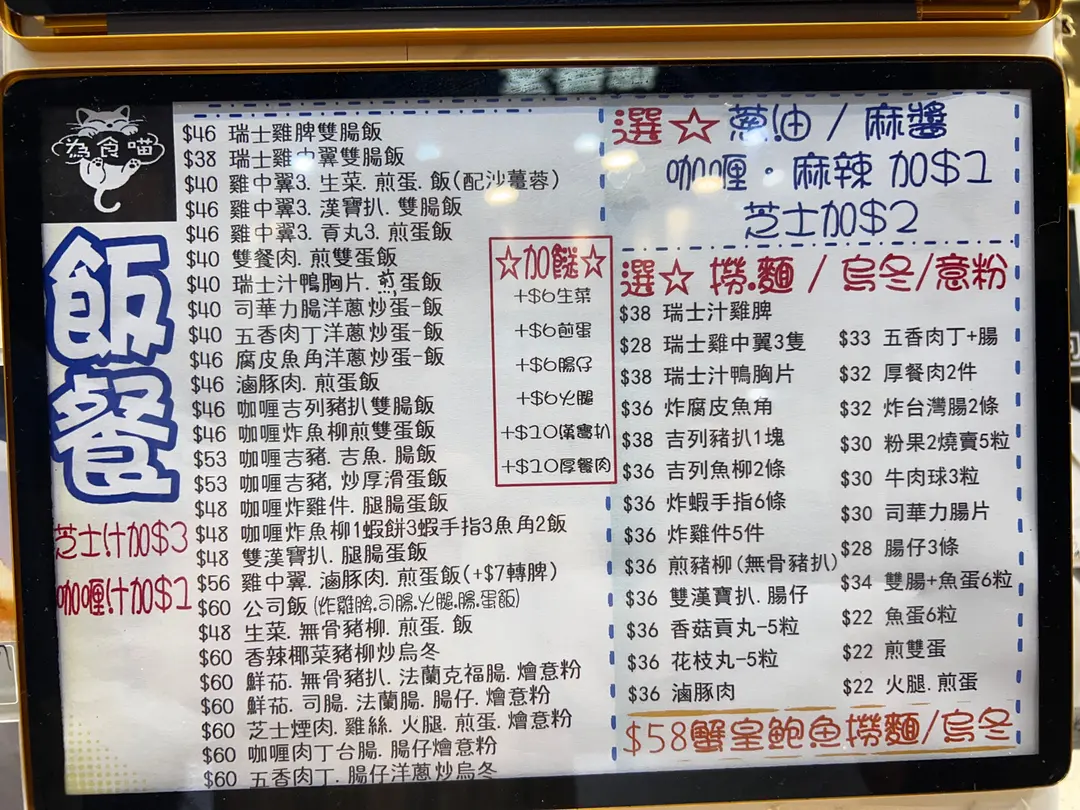 為食喵
飯
餐
芝士汁加$3
咖喱汁加$1
$46 瑞士雞脾雙腸飯
$38 瑞士雞中翼雙腸飯
$40 雞中翼3. 生菜. 煎蛋. 飯(配沙薑蓉)
$46 雞中翼3. 漢寶扒. 雙腸飯
$46 雞中翼3. 貢丸3. 煎蛋飯
$40 雙餐肉. 煎雙蛋飯
$40 瑞士汁鴨胸片. 煎蛋飯
$40 司華力腸洋蔥炒蛋-飯
$40 五香肉丁洋蔥炒蛋-飯
$46 腐皮魚角洋蔥炒蛋-飯
$46 滷豚肉. 煎蛋飯
$46 咖喱吉列豬扒雙腸飯
$46 咖喱炸魚柳煎雙蛋飯
$53 咖喱吉豬. 吉魚. 腸飯
$53 咖喱吉豬, 炒厚滑蛋飯
$48 咖喱炸雞件. 腿腸蛋飯
$48 咖喱炸魚柳1蝦餅3蝦手指3魚角2飯
$48 雙漢寶扒. 腿腸蛋飯
$56 雞中翼. 滷豚肉. 煎蛋飯(+$7轉脾)
$60 公司飯 (炸雞脾.司腸.火腿.腸.蛋飯)
$48 生菜. 無骨豬柳. 煎蛋. 飯
$60 香辣椰菜豬柳炒烏冬
$60 鮮茄. 無骨豬扒. 法蘭克福腸. 燴意粉
$60 鮮茄. 司腸. 法蘭腸. 腸仔. 燴意粉
$60 芝士煙肉. 雞絲. 火腿. 煎蛋. 燴意粉
$60 咖喱肉丁台腸. 腸仔燴意粉
$60 五香肉丁. 腸仔洋蔥炒烏冬
☆加餸☆
+$6生菜
+$6煎蛋
+$6腸仔
+$6火腿
+$10漢寶扒
+$10厚餐肉
選☆ 蔥油 / 麻醬
咖喱。麻辣 加$1
芝士加$2
選☆ 撈.麵 / 烏冬/意粉
$38 瑞士汁雞脾
$28 瑞士雞中翼3隻
$38 瑞士汁鴨胸片
$36 炸腐皮魚角
$38 吉列豬扒1塊
$36 吉列魚柳2條
$36 炸蝦手指6條
$36 炸雞件5件
$36 煎豬柳(無骨豬扒)
$36 雙漢寶扒. 腸仔
$36 香菇貢丸-5粒
$36 花枝丸-5粒
$36 滷豚肉
$33 五香肉丁+腸
$32 厚餐肉2件
$32 炸台灣腸2條
$30 粉果2燒賣5粒
$30 牛肉球3粒
$30 司華力腸片
$28 腸仔3條
$34 雙腸+魚蛋6粒
$22 魚蛋6粒
$22 煎雙蛋
$22 火腿. 煎蛋
$58蟹皇鮑魚撈麵/烏冬